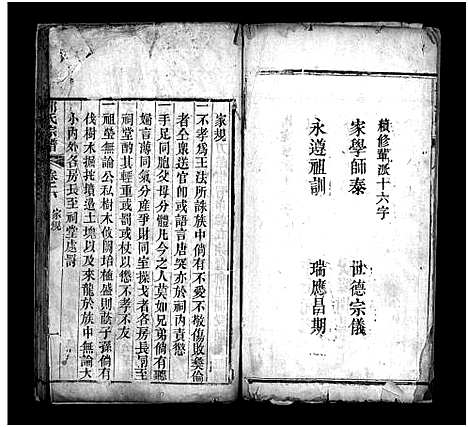 續修輩派十六字
家學師泰　世德宗儀
永遵祖訓　瑞應昌期
家規
一不孝爲王法所誅族中倘有不愛不敬傷敗彝倫
者仝衆送官師或語言唐突亦於祠內責懲
一兄弟同胞父母凡今之人莫如兄弟倘有聽信
婦言薄同氣分產爭財同室操戈者各房長前至
祠堂酌其輕重或罰或杖以懲不孝不友
一祖塋無論公私樹木攸關培植盛則蔭子孫倘有
伐樹木掘挖墳邊土塊以及來龍於族中無論大
小內外各房長於祠堂處罰
氏宗譜
卷之六
家規
一